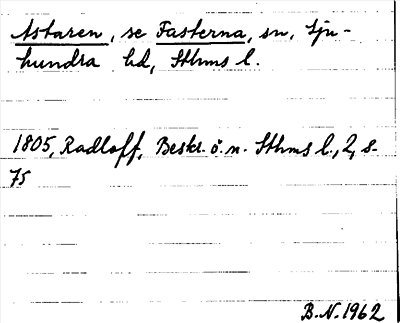 Astaren, se Fasterna, sn, Sju-
hundra hd, Sthms l.
1805, Radloff, Beskr. ö. n. Sthms l., 2, s.
75
B.N. 1962